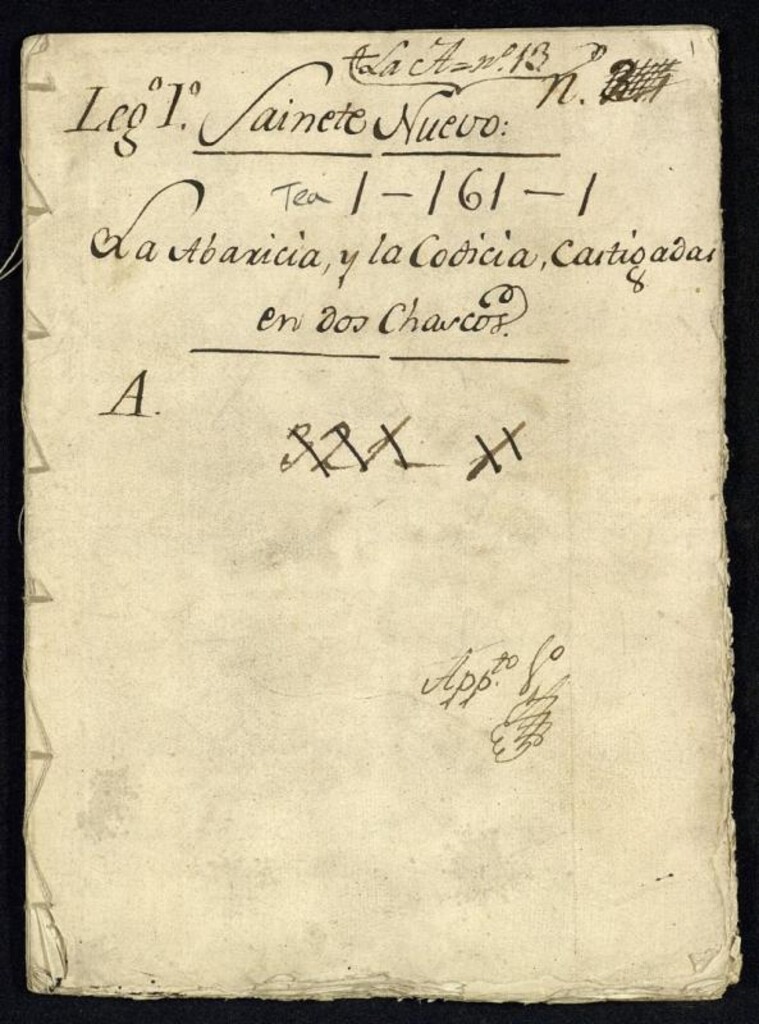 La A = nº. 13
Legº 1º. Sainete Nuevo: n.
Tea 1-161-1
La Abaricia, y la Codicia, Castigadas
en dos Charcos.
A.
App.to
1